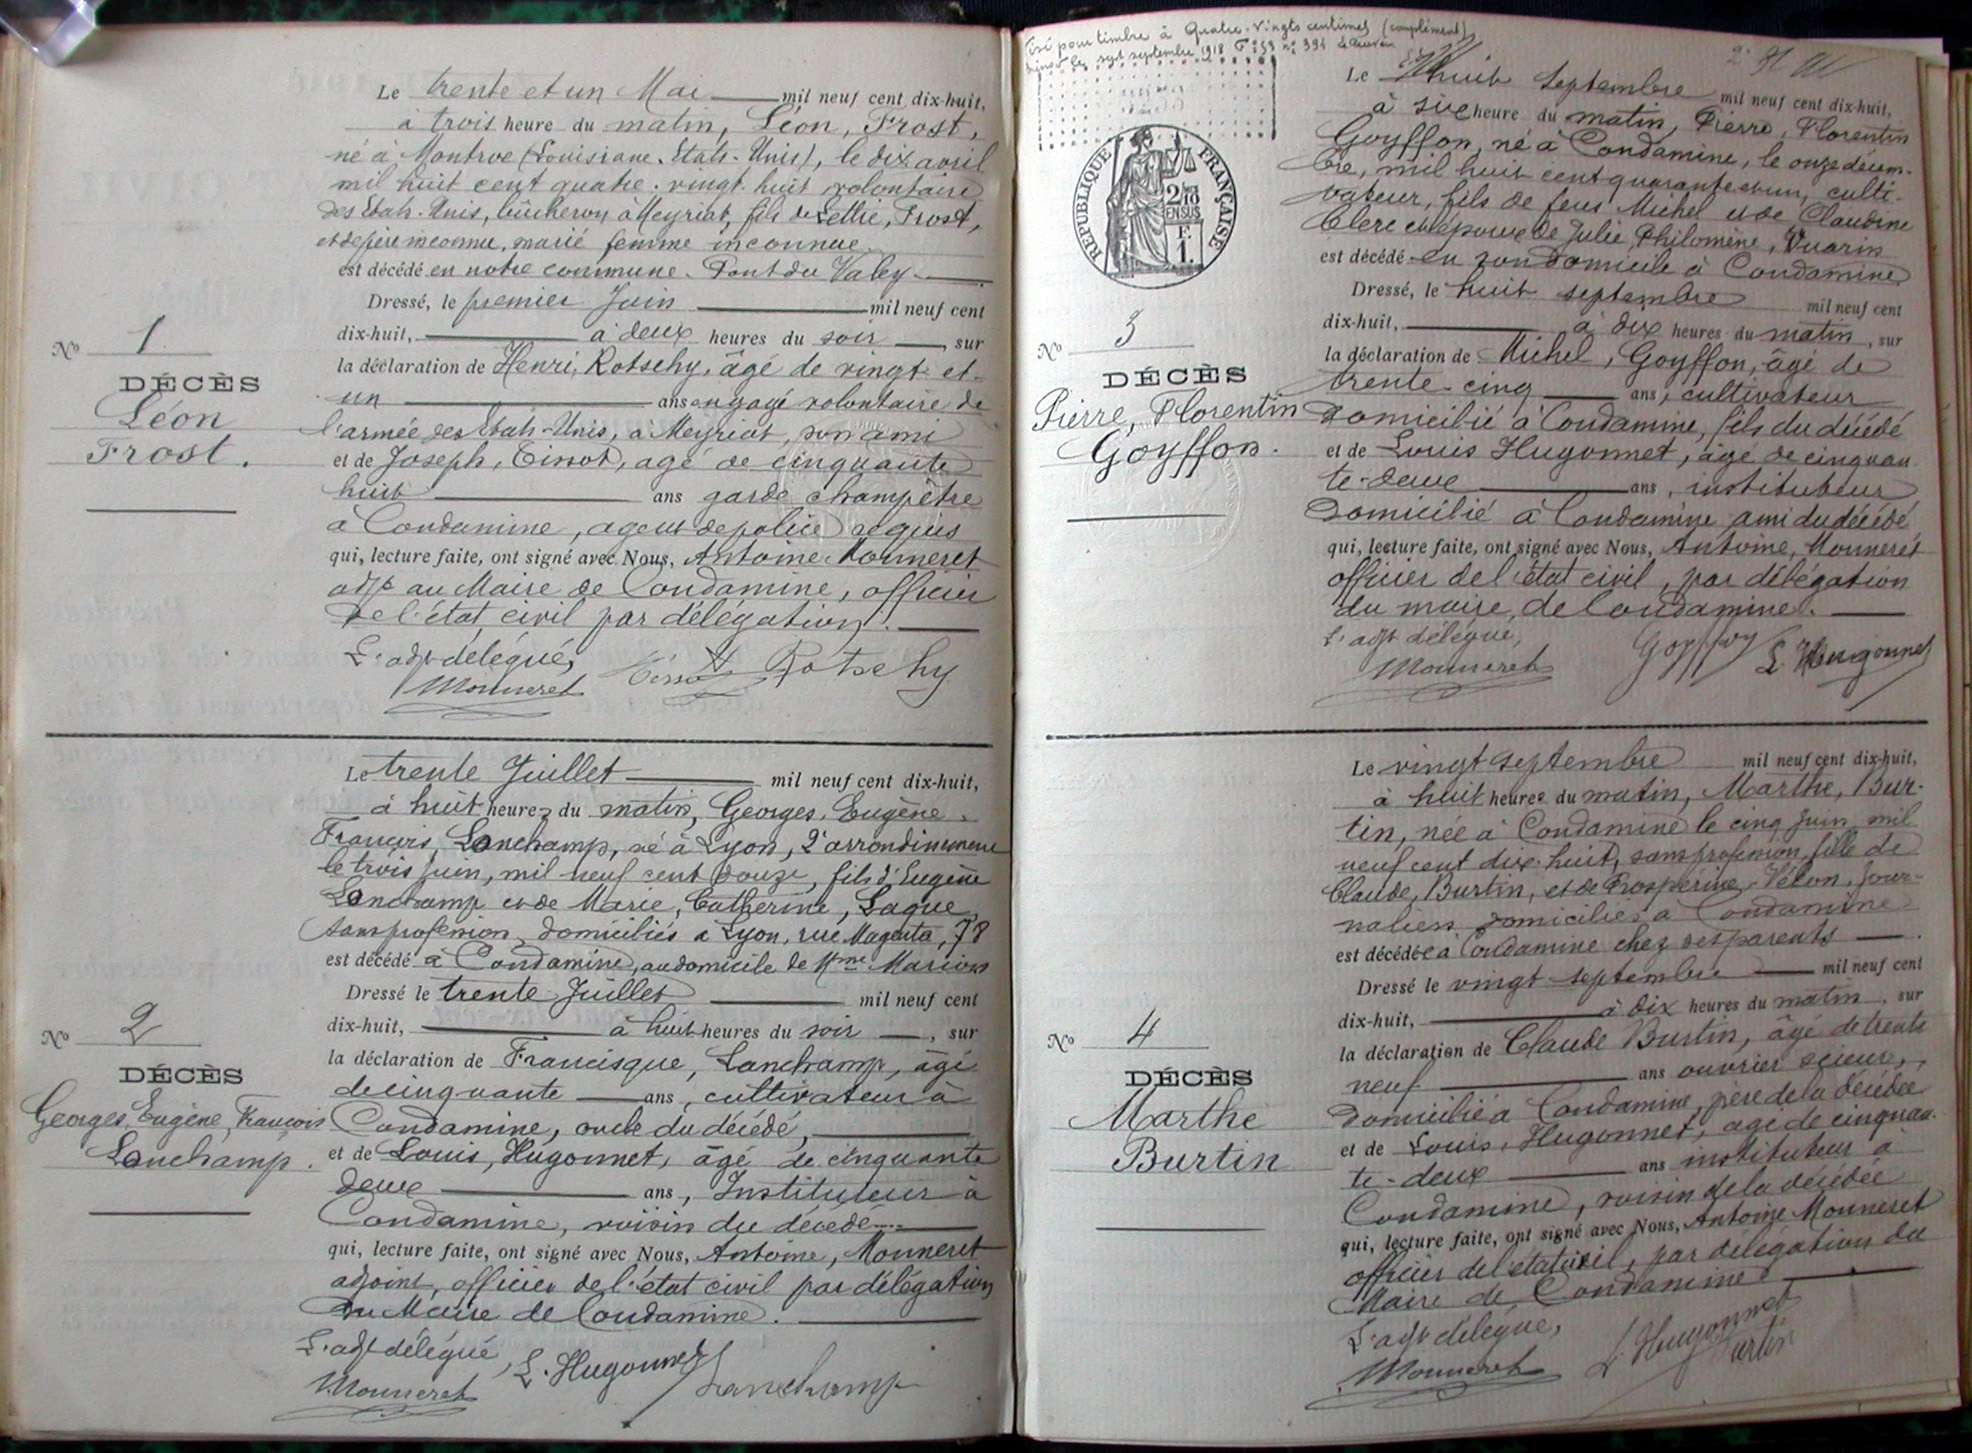 Le trente et un Mai mil neuf cent dix-huit,
à trois heure du matin, Léon, Frost,
né à Montroe (Louisiane. Etats-Unis), le dix avril
mil huit cent quatre-vingt-huit volontaire
des Etats-Unis, bûcheron à Meyriat, fils de Lettie, Frost,
et de père inconnu, marié femme inconnue
est décédé en notre commune. Pont du Valey.
Dressé, le premier Juin mil neuf cent
dix-huit, à deux heures du soir, sur
la déclaration de Henri, Rotschy, âgé de vingt et
un ans engagé volontaire de
l'armée des Etats-Unis, à Meyriat, son ami
et de Joseph, Tissot, agé de cinquante
huit ans garde champêtre
à Condamine, agent de police requis
qui, lecture faite, ont signé avec Nous, Antoine Monneret
adjt au Maire de Condamine, officier
de l'état civil par délégation.
L'adjt délégué, Tissot Rotschy
Monneret
No 1
DÉCÈS
Léon
Frost.
Le trente Juillet mil neuf cent dix-huit,
à huit heures du matin, Georges, Eugène
François, Lanchamp, né à Lyon, 2e arrondissement
le trois juin, mil neuf cent douze, fils d'Eugène
Lanchamp et de Marie, Catherine, Lague
sans profession, domiciliés à Lyon, rue Magenta, 78
est décédé à Condamine, au domicile de Mme Marion
Dressé le trente Juillet mil neuf cent
dix-huit, à huit heures du soir, sur
la déclaration de Francisque, Lanchamp, âgé
de cinquante ans, cultivateur à
Condamine, oncle du décédé,
et de Louis, Hugonnet, âgé de cinquante
deux ans, Instituteur à
Condamine, voisin du décédé
qui, lecture faite, ont signé avec Nous, Antoine, Monneret
adjoint, officier de l'état civil par délégation
du Maire de Condamine.
L'adjt délégué, L. Hugonnet Lanchamp
Monneret
No 2
DÉCÈS
Georges, Eugène, François
Lanchamp.
Visé pour timbre à Quatre-Vingts centimes (complément)
sept septembre 1918 Fo 53 no 394
RÉPUBLIQUE FRANÇAISE
2/10
EN SUS
F.
1.
Le huit Septembre mil neuf cent dix-huit,
à six heure du matin, Pierre, Florentin
Goyffon, né à Condamine, le onze décem-
bre, mil huit cent quarante et un, culti-
vateur, fils de feus Michel et de Claudine
Clerc et époux de Julie, Philomène, Vuarin
est décédé en son domicile à Condamine
Dressé, le huit septembre mil neuf cent
dix-huit, à dix heures du matin, sur
la déclaration de Michel, Goyffon, âgé de
trente-cinq ans, cultivateur
domicilié à Condamine, fils du décédé
et de Louis Hugonnet, âgé de cinquan
te-deux ans, instituteur
domicilié à Condamine ami du décédé
qui, lecture faite, ont signé avec Nous, Antoine, Monneret
officier de l'état civil, par délégation
du maire, de Condamine.
L'adjt délégué, Goyffon L. Hugonnet
Monneret
No 3
DÉCÈS
Pierre, Florentin
Goyffon.
Le vingt septembre mil neuf cent dix-huit,
à huit heures du matin, Marthe, Bur-
tin, née à Condamine le cinq juin mil
neuf cent dix-huit, sans profession, fille de
Claude, Burtin, et de Prospérine, Vélon, jour-
naliers domiciliés à Condamine
est décédée à Condamine chez ses parents
Dressé le vingt septembre mil neuf cent
dix-huit, à dix heures du matin, sur
la déclaration de Claude Burtin, âgé de trente
neuf ans ouvrier scieur,
domicilié à Condamine, père de la décédée
et de Louis, Hugonnet, agé de cinquan-
te-deux ans instituteur à
Condamine, voisin de la décédée
qui, lecture faite, ont signé avec Nous, Antoine Monneret
officier de l'état civil, par délégation du
Maire de Condamine
L'adjt délégué, L. Hugonnet
Monneret Burtin
No 4
DÉCÈS
Marthe
Burtin